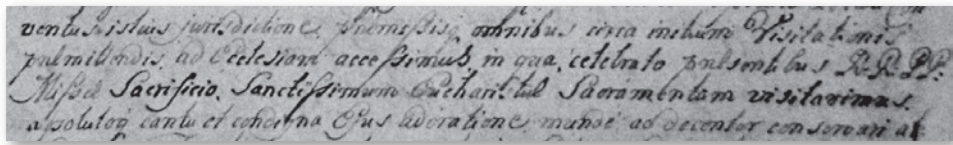 ventus istius jurisdictione, praemissisq omnibus circa initium Visitationis
praemittendis, ad Ecclesiam accessimus, in qua, celebrato praesentibus R.R.P.P.
Missae Sacrificio, Sanctissimum Eucharistiae Sacramentum visitavimus,
absolutoq cantu et condigna Ejus adoratione, munde ac decenter conservari